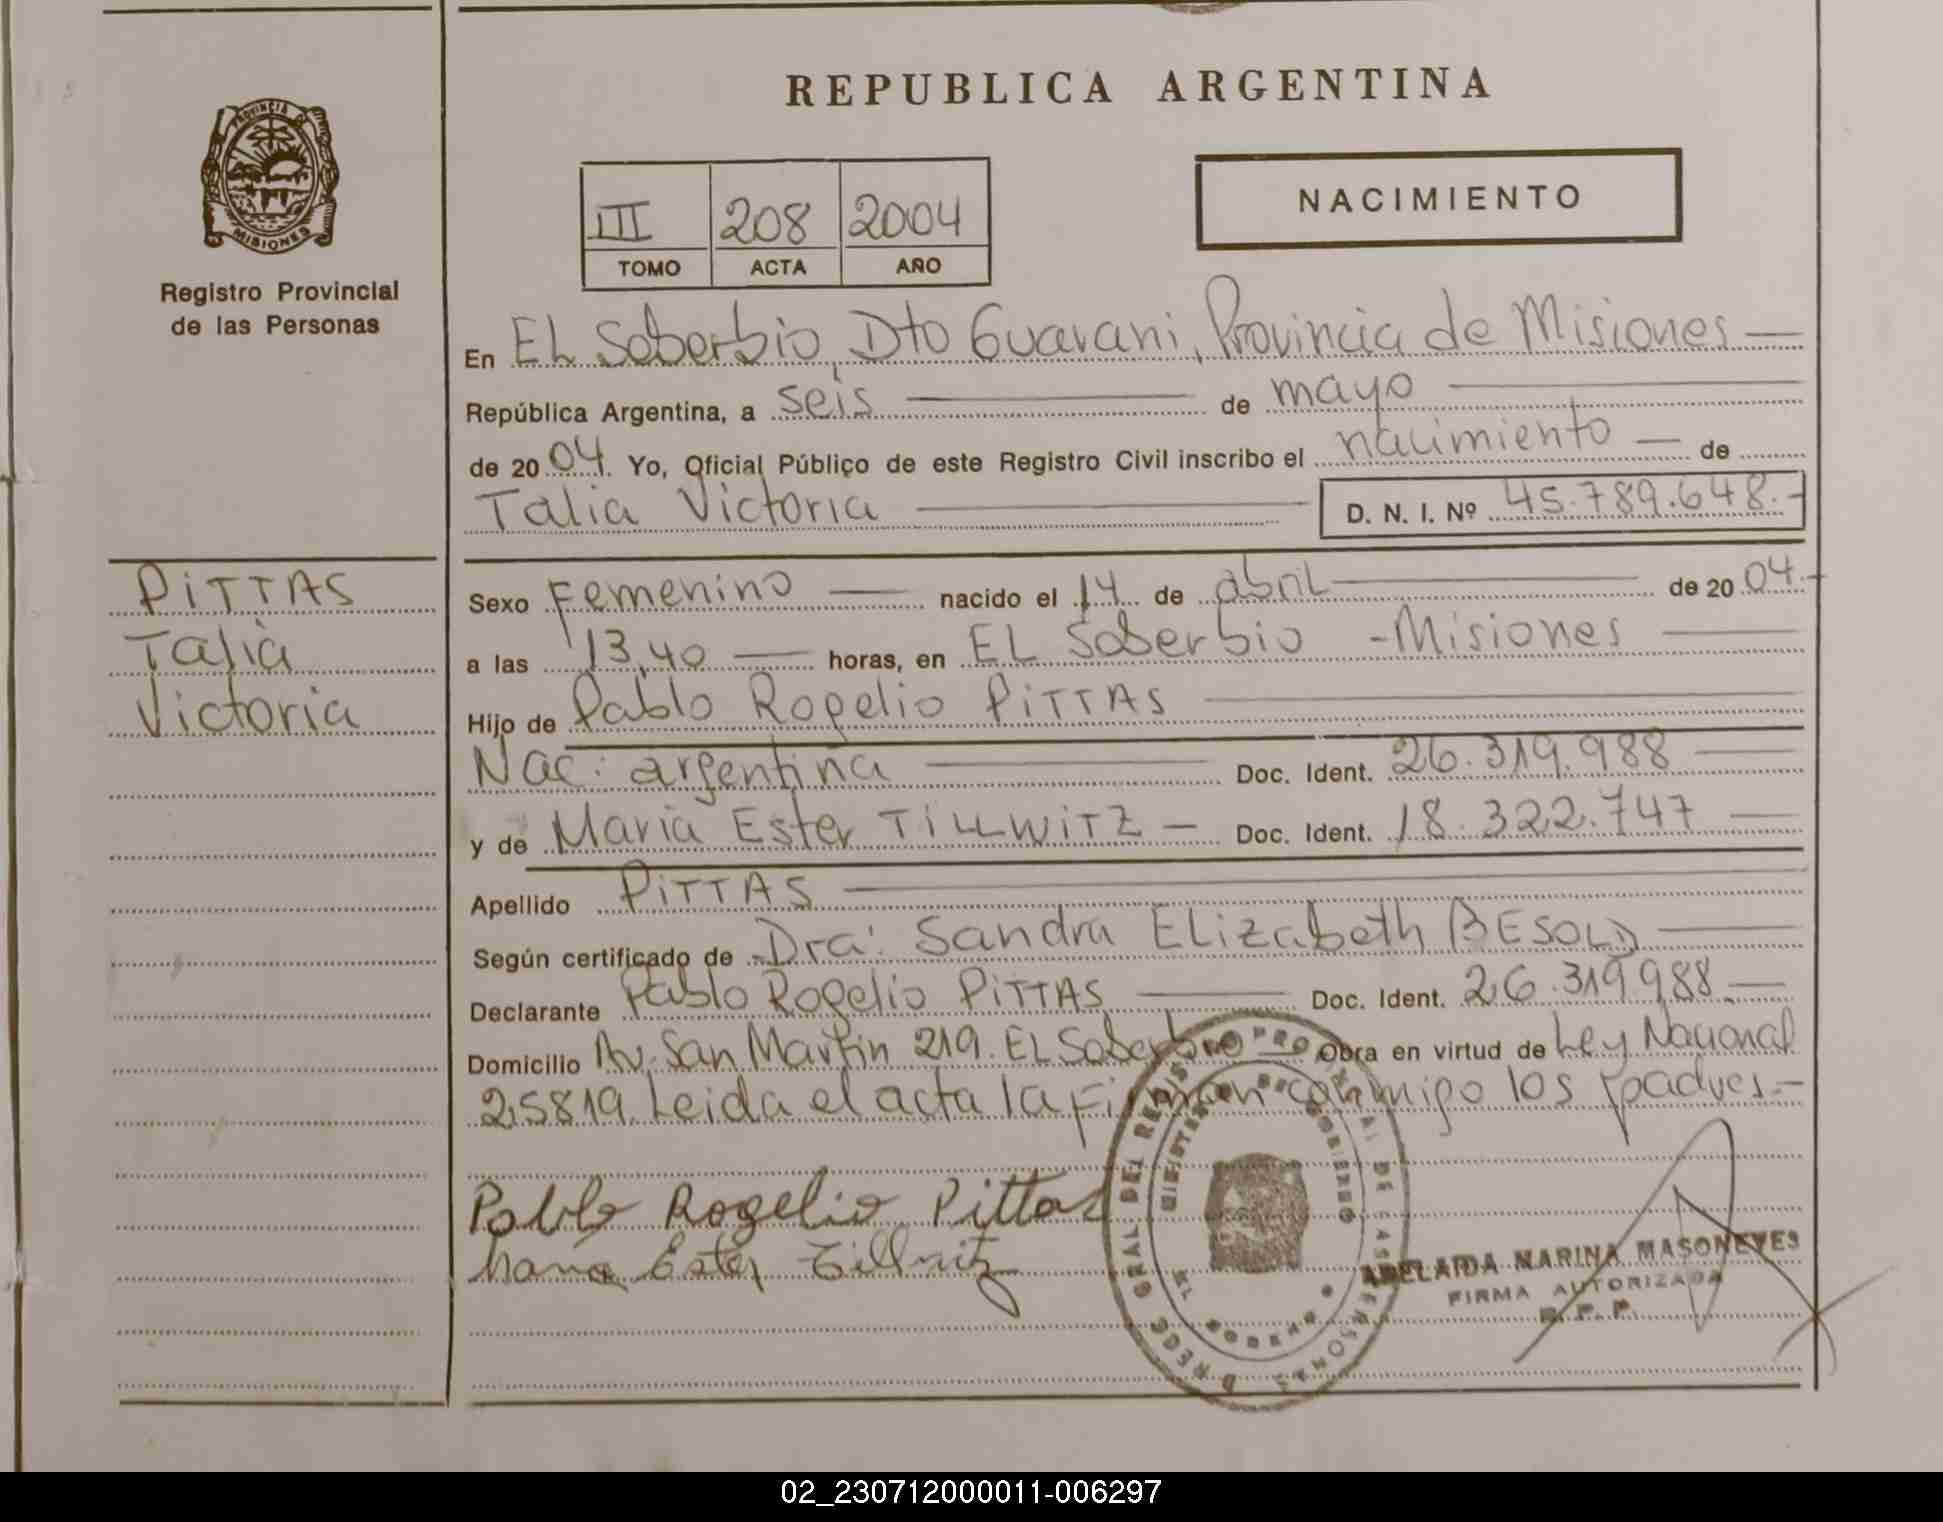 REPUBLICA ARGENTINA
PROVINCIA DE
MISIONES
Registro Provincial
de las Personas
III 208 2004
TOMO ACTA AÑO
NACIMIENTO
En EL Soberbio, Dto Guarani, Provincia de Misiones —
República Argentina, a seis — de mayo —
de 20 04. Yo, Oficial Público de este Registro Civil inscribo el nacimiento — de
Talia Victoria — D. N. I. Nº 45.789.648.-
PiTTAS
Talia
Victoria
Sexo Femenino — nacido el 14 de abril — de 20 04.-
a las 13,40 — horas, en EL Soberbio - Misiones —
Hijo de Pablo Rogelio PiTTAS —
Nac: argentina — Doc. Ident. 26.319.988 —
y de Maria Ester TiLLWiTZ — Doc. Ident. 18.322.747 —
Apellido PiTTAS —
Según certificado de Dra: Sandra Elizabeth BESOLD —
Declarante Pablo Rogelio PiTTAS — Doc. Ident. 26.319988.—
Domicilio Av. San Martin 219. EL Soberbio — Obra en virtud de Ley Nacional
25819. Leida el acta la Firman conmigo los padres.-
Pablo Rogelio Pittas
Maria Ester Tillwitz
GRAL DEL REGISTRO PROVINCIAL DE LAS PERSONAS
MINISTERIO DE GOBIERNO
ADELAIDA MARINA MASONEVES
FIRMA AUTORIZADA
R. P. P.
02_230712000011-006297